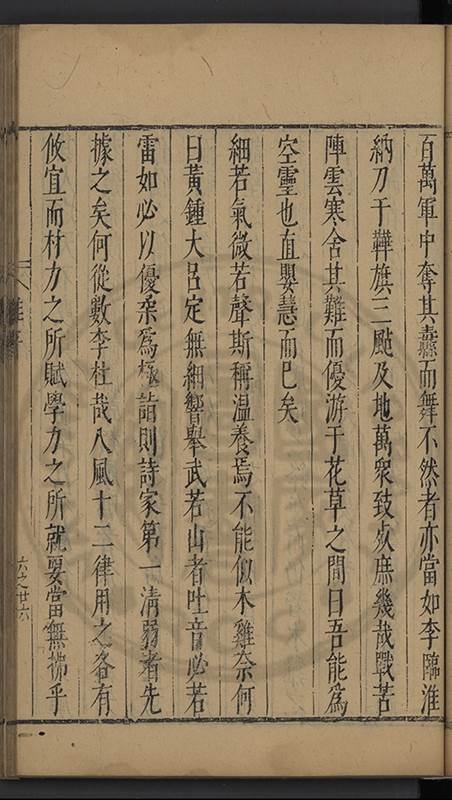 百萬軍中奪其纛而舞不然者亦當如李臨淮
納刀于鞾旗三颭及地萬衆致死庶幾哉戰苦
陣雲寒舍其難而優游于花草之間曰吾能爲
空靈也直嬰慧而已矣
細若氣微若聲斯稱溫養焉不能似木雞奈何
曰黃鍾大呂定無細響舉武若山者吐音必若
雷如必以優柔爲極詣則詩家第一淸弱者先
據之矣何從數李杜哉八風十二律用之各有
攸宜而材力之所賦學力之所就要當無拂乎
六之廿六